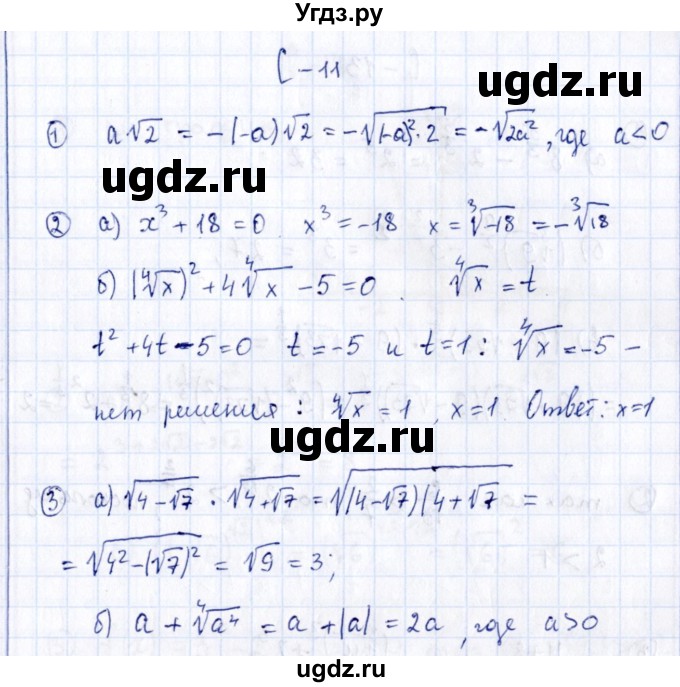 Угдз.ру
С-11
ugdz.ru
① a√2 = -(-a)√2 = -√((-a)²·2) = -√(2a²), где a<0
ugdz.ru
② а) x³+18=0. x³=-18 x=³√-18 = -³√18
б) (⁴√x)²+4⁴√x -5=0. ⁴√x = t
t²+4t-5=0 t=-5 и t=1: ⁴√x=-5 -
нет решения: ⁴√x = 1, x=1 Ответ: x=1
ugdz.ru
③ а) √(4-√7) · √(4+√7) = √((4-√7)(4+√7) =
= √(4²-(√7)²) = √9 = 3;
ugdz.ru
б) a + ⁴√a⁴ = a+|a| = 2a, где a>0
ugdz.ru